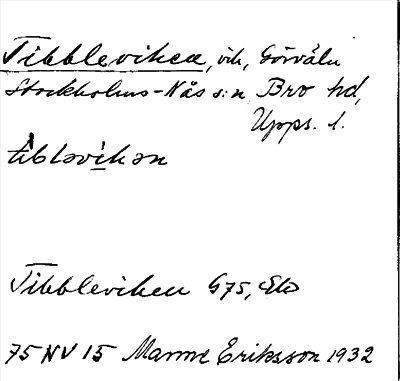 Tibbleviken, vik, Görväln
Stockholms-Näs s:n, Bro hd,
Upps. l.
tìbləvìkən
Tibbleviken G75, Ek
75 NV 15 Manne Eriksson 1932